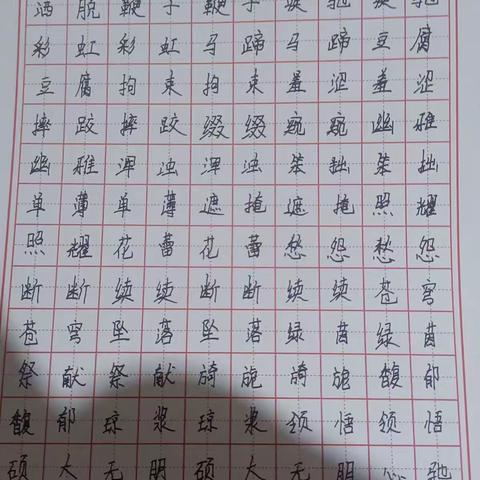 洒脱鞭子鞭子
彩虹彩虹马蹄马蹄豆腐
豆腐拘束拘束羞涩羞涩
摔跤摔跤缀缀宛宛幽雅
幽雅浑浊浑浊笨拙笨拙
单薄单薄遮掩遮掩照耀
照耀花蕾花蕾愁怨愁怨
断断续续断断续续苍穹
苍穹坠落坠落绿茵绿茵
祭献祭献旖旎旖旎馥郁
馥郁琼浆琼浆领悟领悟
硕大无朋硕大无朋心驰